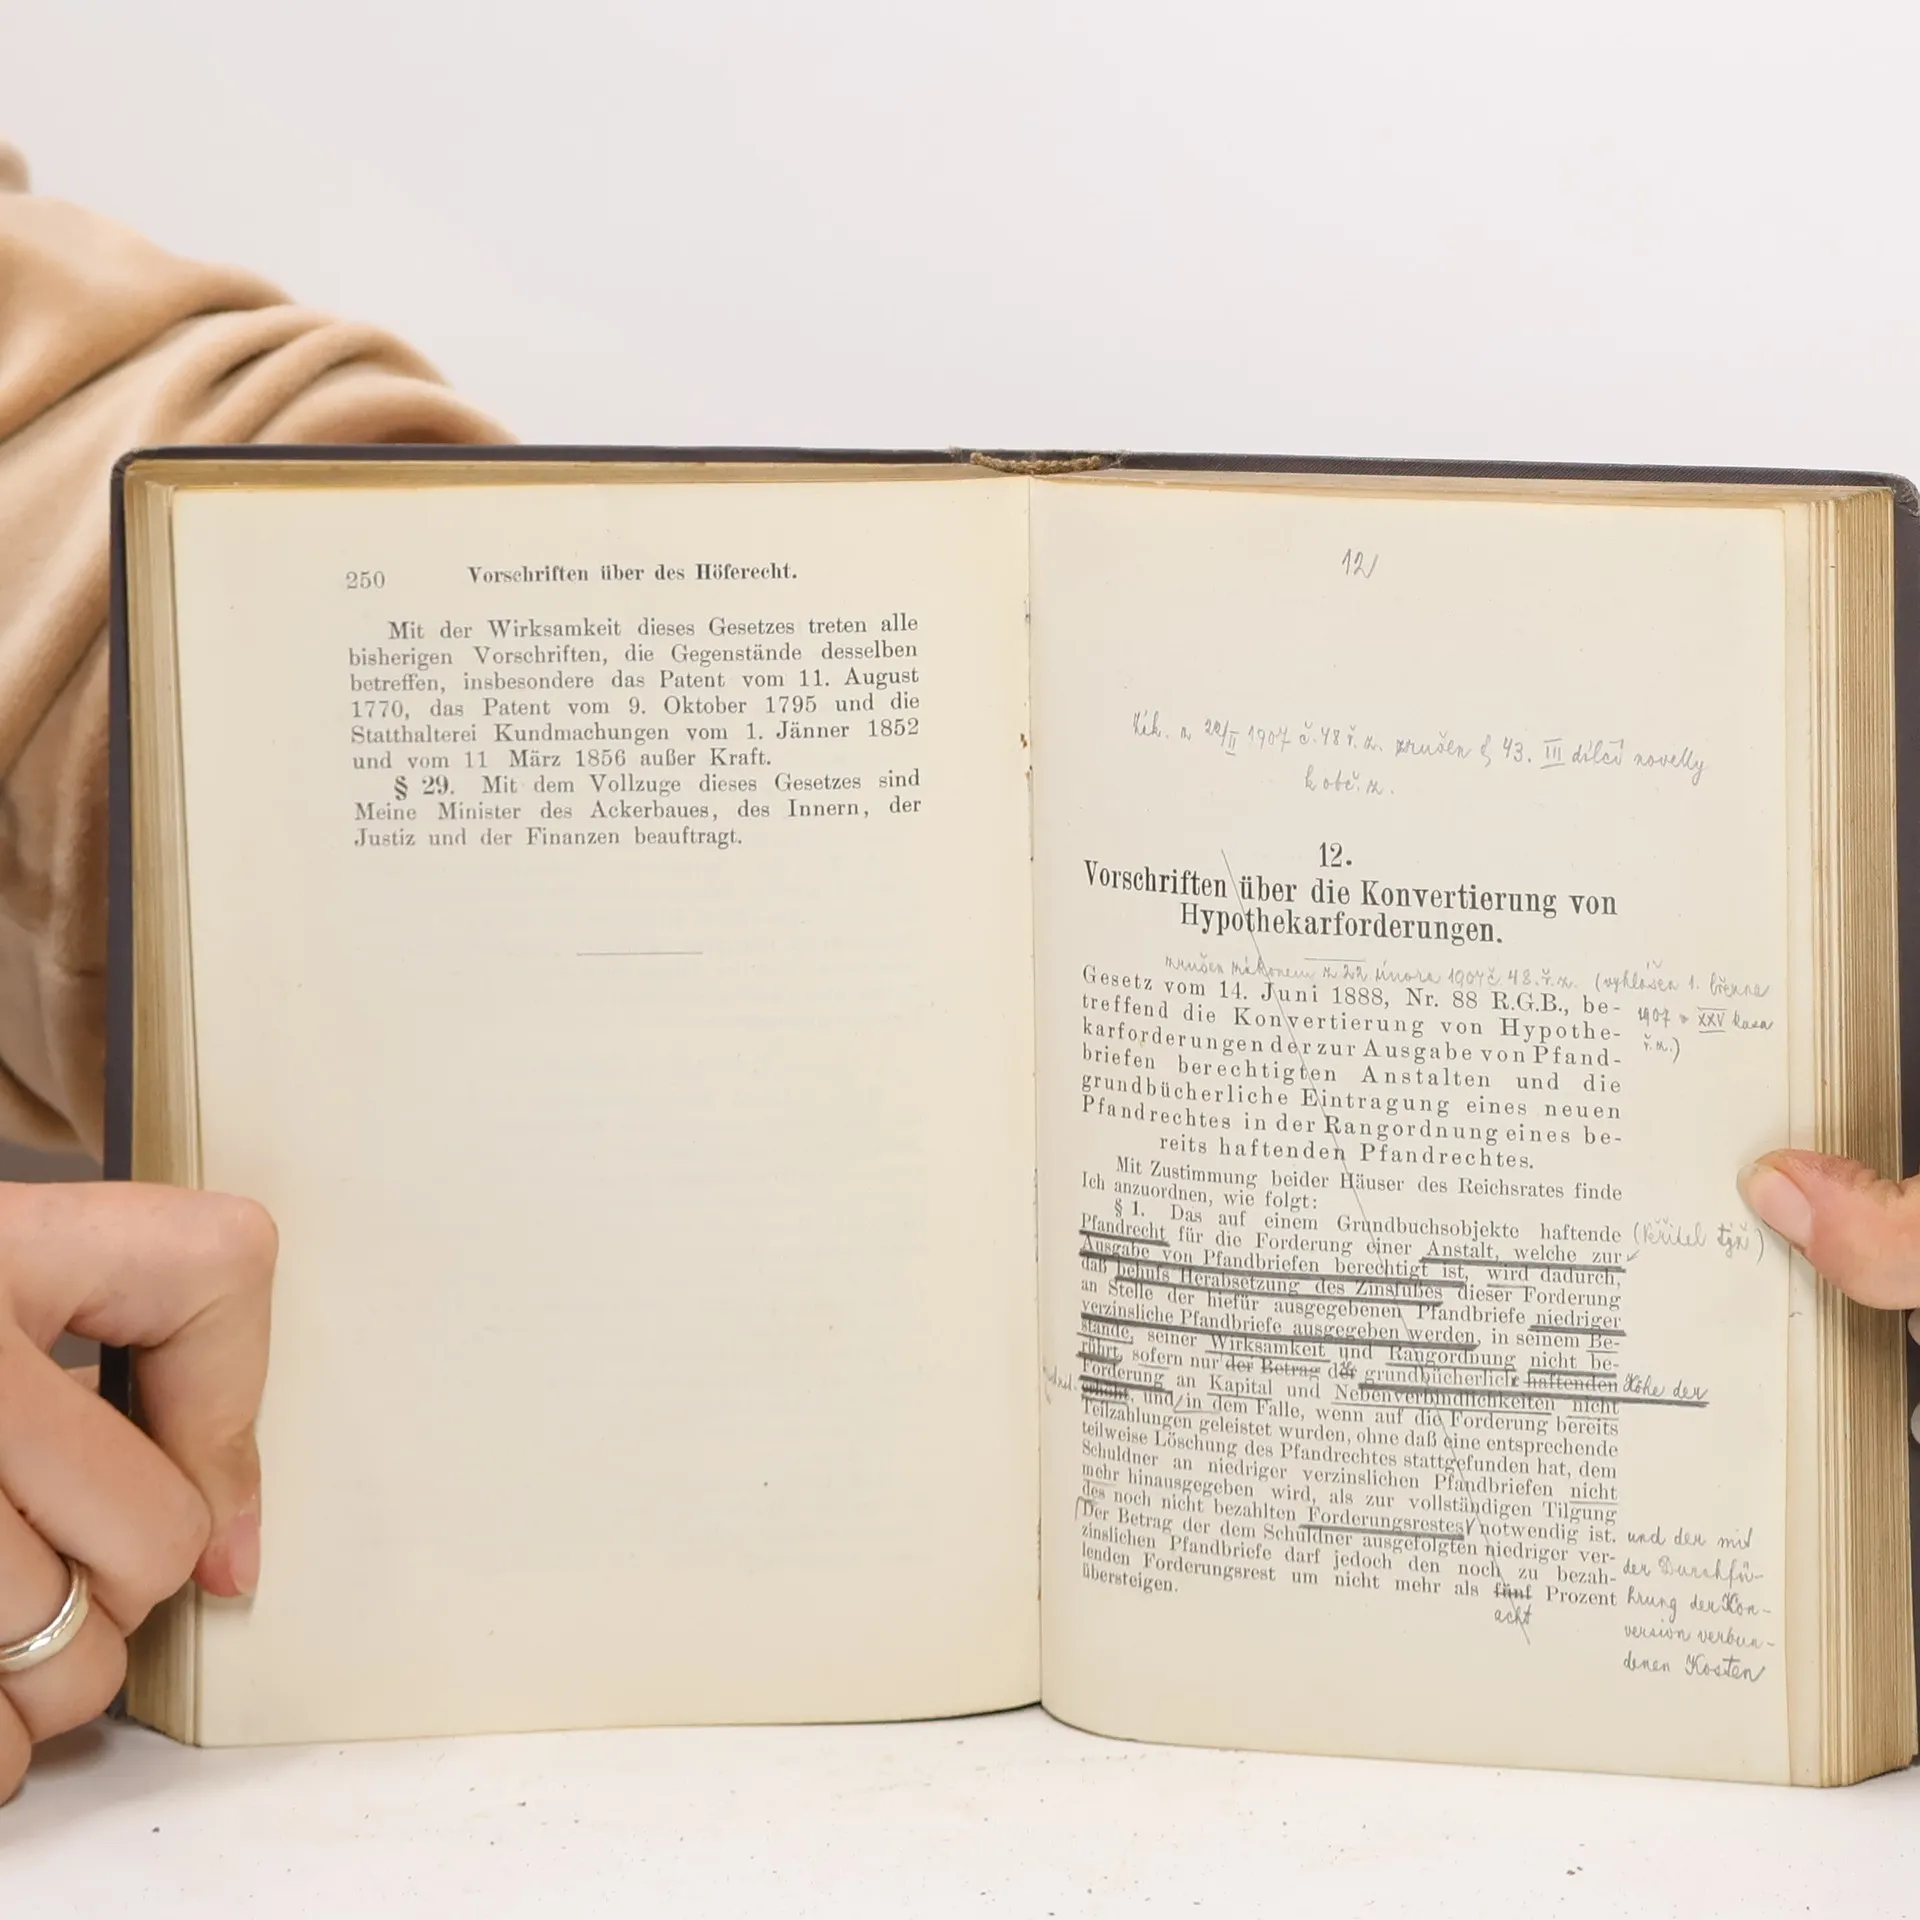 250 Vorschriften über des Höferecht.
Mit der Wirksamkeit dieses Gesetzes treten alle
bisherigen Vorschriften, die Gegenstände desselben
betreffen, insbesondere das Patent vom 11. August
1770, das Patent vom 9. Oktober 1795 und die
Statthalterei Kundmachungen vom 1. Jänner 1852
und vom 11 März 1856 außer Kraft.
§ 29. Mit dem Vollzuge dieses Gesetzes sind
Meine Minister des Ackerbaues, des Innern, der
Justiz und der Finanzen beauftragt.
12
Zák. z 22/II 1907 č. 48 ř. z. zrušen § 43. III dílčí novelly
k obč. z.
12.
Vorschriften über die Konvertierung von
Hypothekarforderungen.
zrušen zákonem z 22 února 1907 č. 48. ř. z. (vyhlášen 1. března
1907 XXV
ř. z.)
Gesetz vom 14. Juni 1888, Nr. 88 R.G.B., be-
treffend die Konvertierung von Hypothe-
karforderungen der zur Ausgabe von Pfand-
briefen berechtigten Anstalten und die
grundbücherliche Eintragung eines neuen
Pfandrechtes in der Rangordnung eines be-
reits haftenden Pfandrechtes.
Mit Zustimmung beider Häuser des Reichsrates finde
Ich anzuordnen, wie folgt:
§ 1. Das auf einem Grundbuchsobjekte haftende
Pfandrecht für die Forderung einer Anstalt, welche zur
Ausgabe von Pfandbriefen berechtigt ist, wird dadurch,
daß behufs Herabsetzung des Zinsfußes dieser Forderung
an Stelle der hiefür ausgegebenen Pfandbriefe niedriger
verzinsliche Pfandbriefe ausgegeben werden, in seinem Be-
stande, seiner Wirksamkeit und Rangordnung nicht be-
rührt, sofern nur der Betrag der grundbücherlich haftenden Höhe der
Forderung an Kapital und Nebenverbindlichkeiten nicht
erhöht, und in dem Falle, wenn auf die Forderung bereits
Teilzahlungen geleistet wurden, ohne daß eine entsprechende
teilweise Löschung des Pfandrechtes stattgefunden hat, dem
Schuldner an niedriger verzinslichen Pfandbriefen nicht
mehr hinausgegeben wird, als zur vollständigen Tilgung
des noch nicht bezahlten Forderungsrestes notwendig ist.
Der Betrag der dem Schuldner ausgefolgten niedriger ver-
zinslichen Pfandbriefe darf jedoch den noch zu bezah-
lenden Forderungsrest um nicht mehr als fünf Prozent
übersteigen.
acht
(Věřitel týž)
und der mit
der Durchfü-
hrung der Kon-
version verbun-
denen Kosten